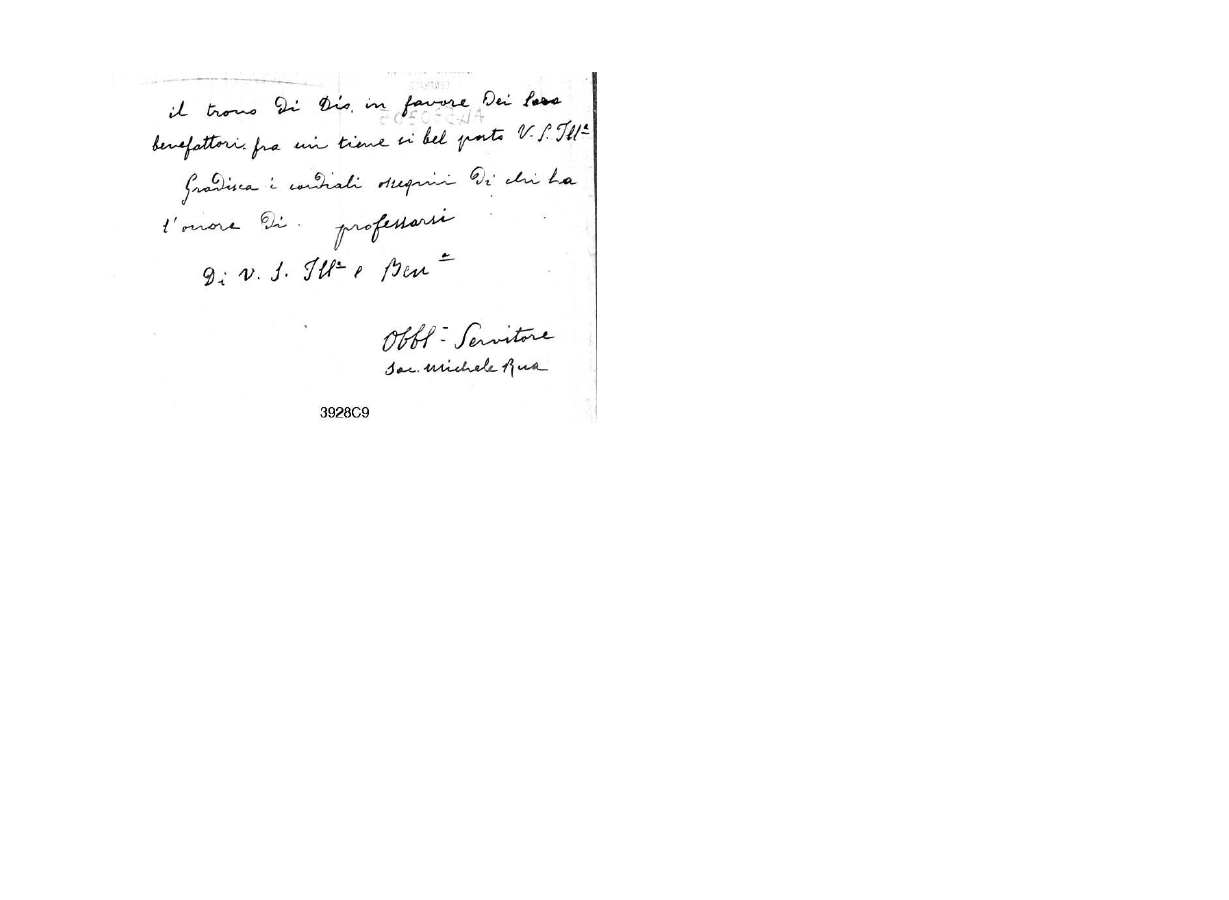 il trono di Dio in favore dei loro
benefattori fra cui tiene sì bel posto V. S. Illª
Gradisca i cordiali ossequii di chi ha
l'onore di professarsi
Di V. S. Illª e Benª
Obbl. Servitore
Sac. Michele Rua
3928C9